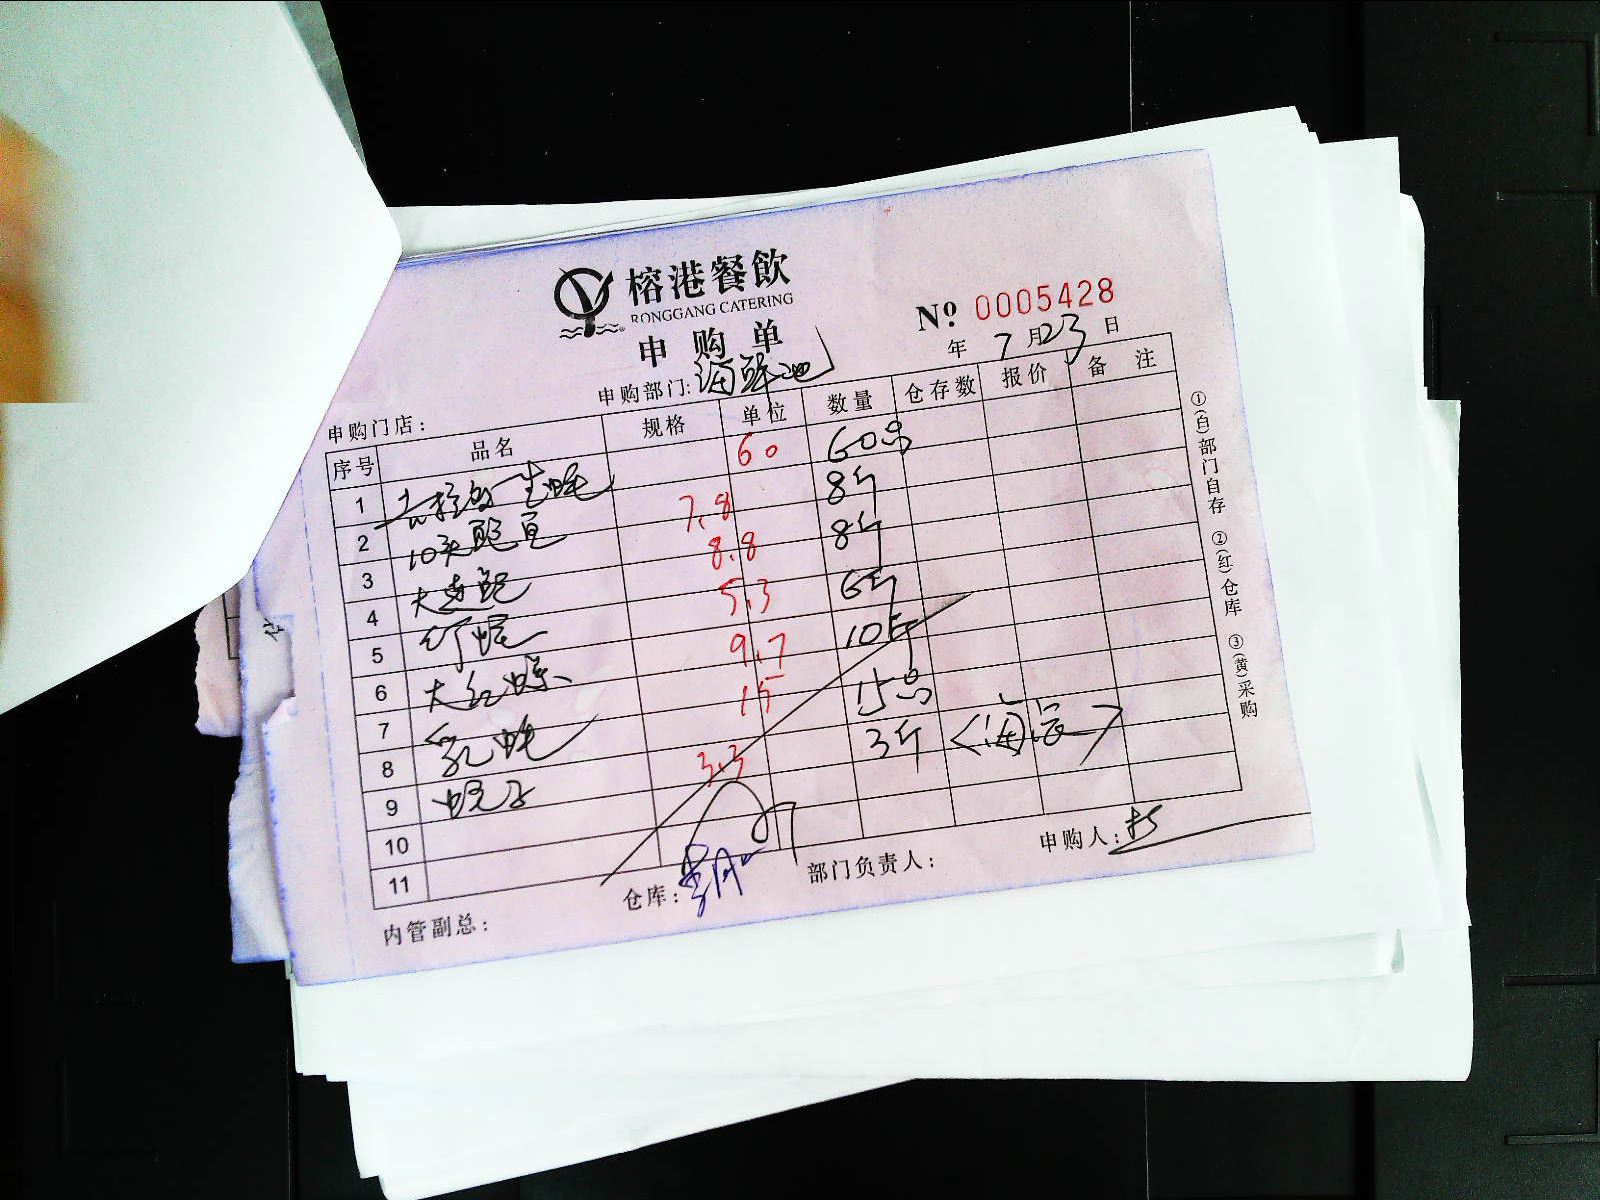 榕港餐飲
RONGGANG CATERING
申购单
№ 0005428
年 7 月 23 日
申购部门: 海鲜池
申购门店:
序号 品名 规格 单位 数量 仓存数 报价 备注
1 生蚝 60 60只
2 10头鲍 7.8 8斤
3 大连鲍 8.8 8斤
4 5.3 6斤
5 大红 9.7 10斤
6 乳蚝 15 15只
7 3.3 3斤
8
9
10
11
内管副总:
仓库:
部门负责人:
申购人:
①(白)部门自存 ②(红)仓库 ③(黄)采购